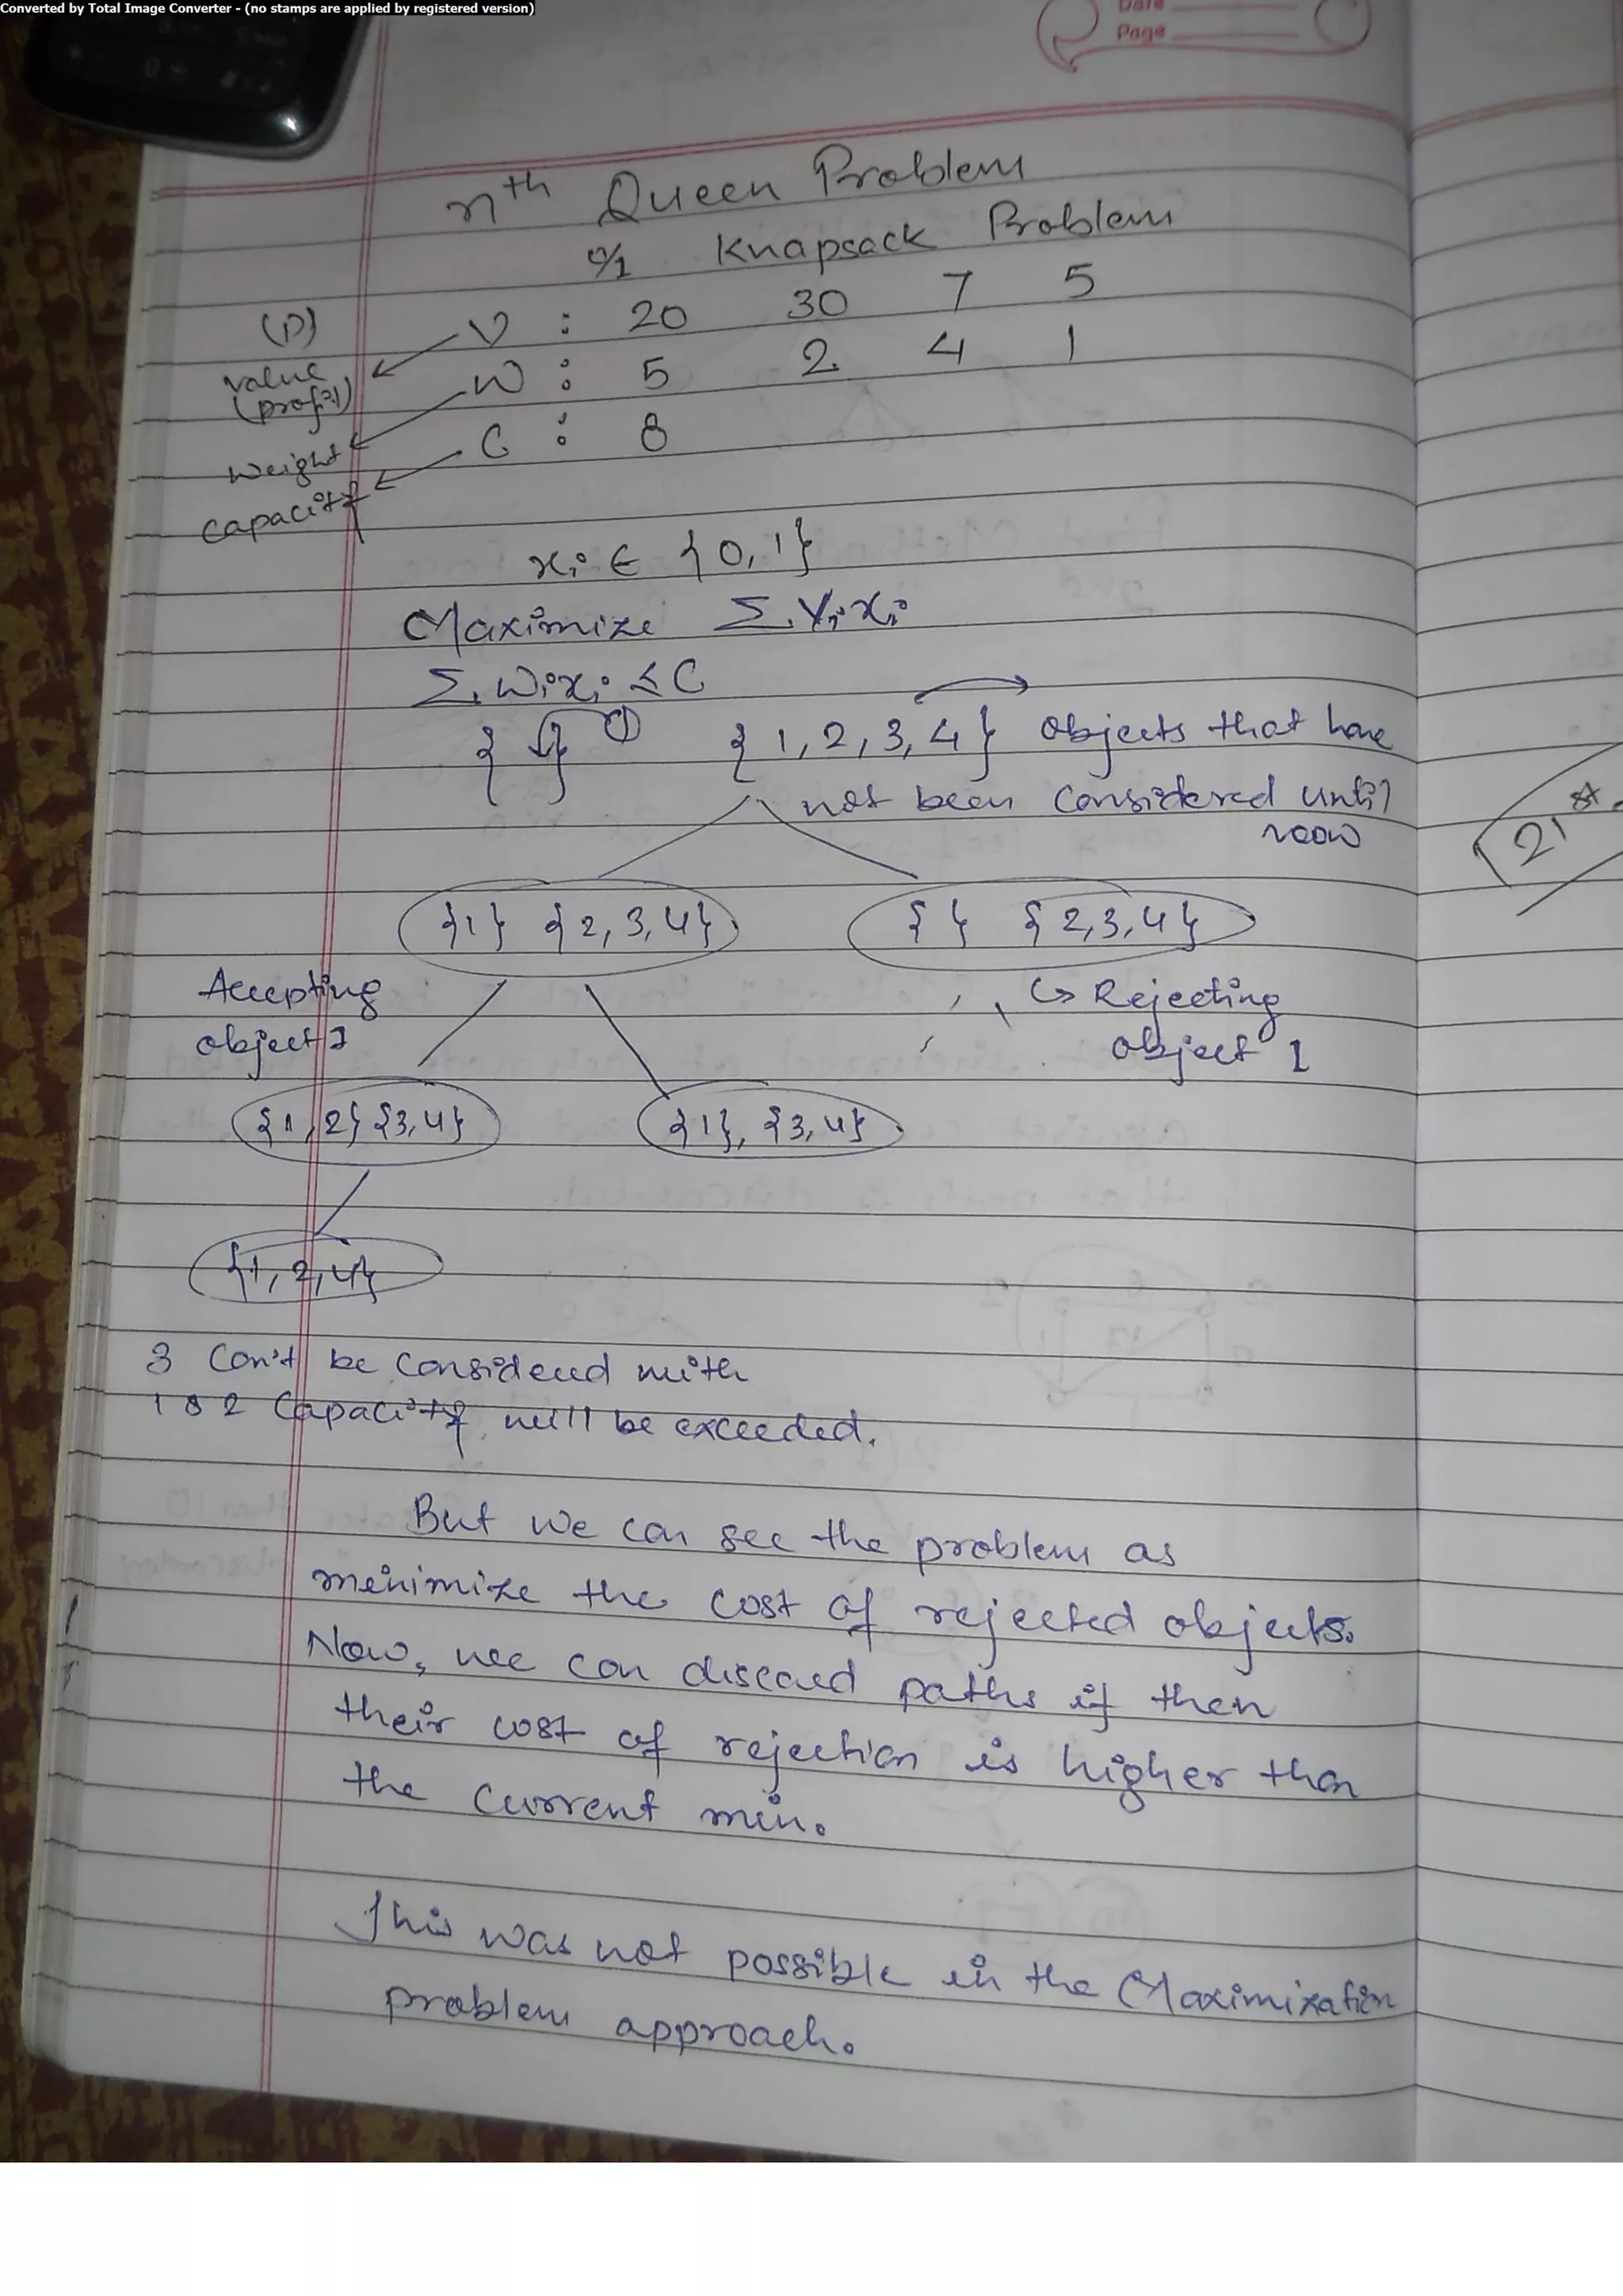 Converted by Total Image Converter - (no stamps are applied by registered version)
Date
Page
nth Queen Problem
0/1 Knapsack Problem
(P) V : 20 30 7 5
value (profit) W : 5 2 4 1
Weight C : 8
Capacity
xi ∈ {0,1}
Maximize Σ Vixi
Σ Wixi ≤ C
{ } ① {1,2,3,4} objects that have
not been Considered until
now
21st
{1} {2,3,4} { } {2,3,4}
Accepting ↳ Rejecting
object 1 object 1
{1,2} {3,4} {1}, {3,4}
{1,2,4}
3 Can't be Considered with
1 & 2 Capacity will be exceeded.
But we can see the problem as
minimize the cost of rejected objects.
Now, we can discard paths if then
their cost of rejection is higher than
the current min.
This was not possible in the Maximization
problem approach.